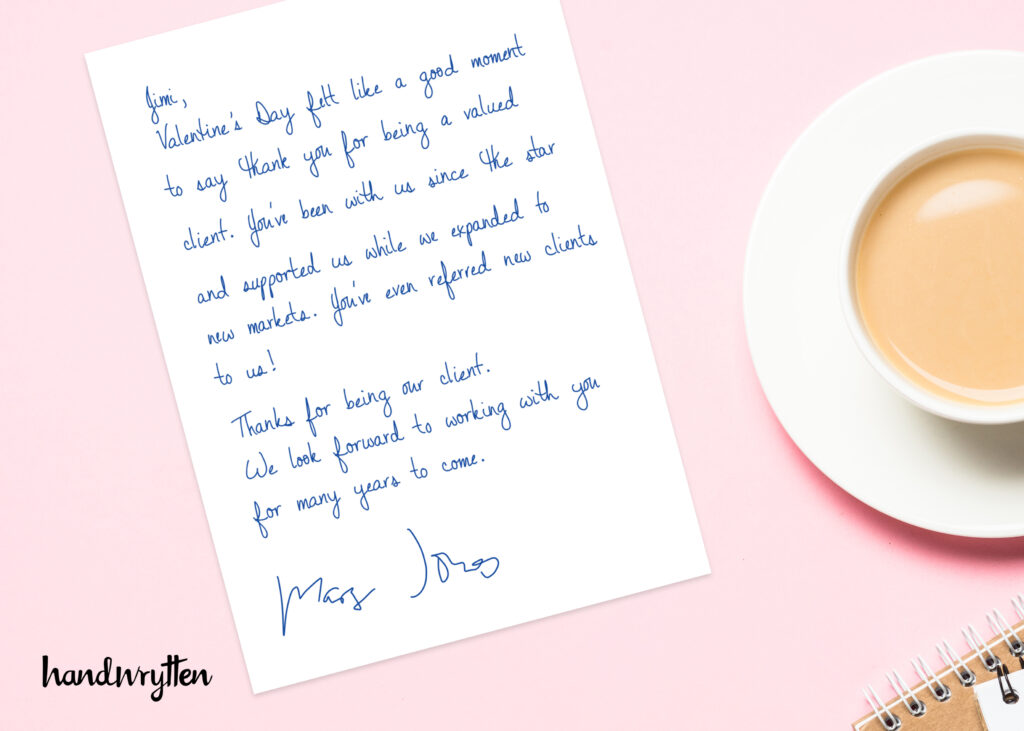 Jimi,
Valentine's Day felt like a good moment
to say thank you for being a valued
client. You've been with us since the star
and supported us while we expanded to
new markets. You've even referred new clients
to us!
Thanks for being our client.
We look forward to working with you
for many years to come.
Mary Jones
handwrytten